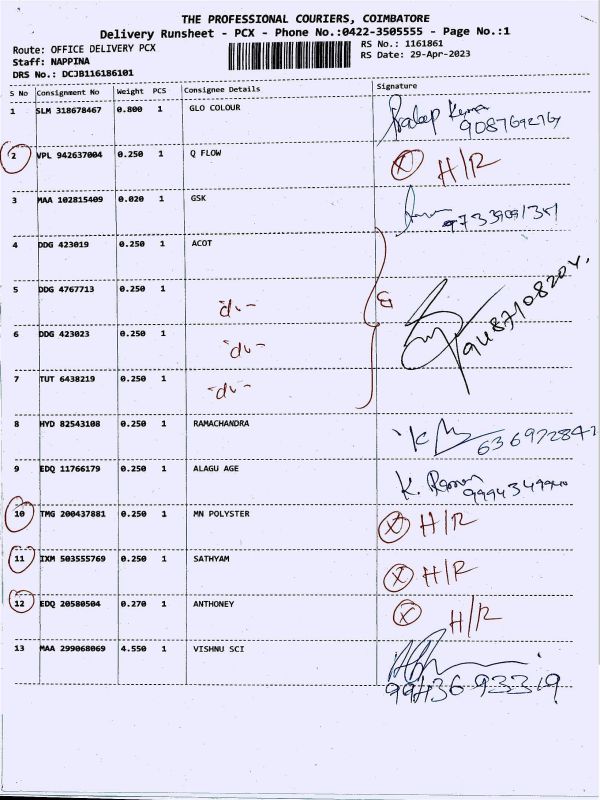 THE PROFESSIONAL COURIERS, COIMBATORE
Delivery Runsheet - PCX - Phone No.:0422-3505555 - Page No.:1
Route: OFFICE DELIVERY PCX
Staff: NAPPINA
DRS No.: DCJB116186101
RS No.: 1161861
RS Date: 29-Apr-2023
S No Consignment No Weight PCS Consignee Details Signature
1 SLM 318678467 0.800 1 GLO COLOUR Pradeep Kumar
2 VPL 942637004 0.250 1 Q FLOW X H/R
3 MAA 102815409 0.020 1 GSK
4 DDG 423019 0.250 1 ACOT
5 DDG 4767713 0.250 1 -do-
6 DDG 423023 0.250 1 -do-
7 TUT 6438219 0.250 1 -do-
9487108204.
8 HYD 82543108 0.250 1 RAMACHANDRA
9 EDQ 11766179 0.250 1 ALAGU AGE K. Raman
10 TMG 200437881 0.250 1 MN POLYSTER X H/R
11 IXM 503555769 0.250 1 SATHYAM X H/R
12 EDQ 20580504 0.270 1 ANTHONEY X H/R
13 MAA 299068069 4.550 1 VISHNU SCI
9943693319